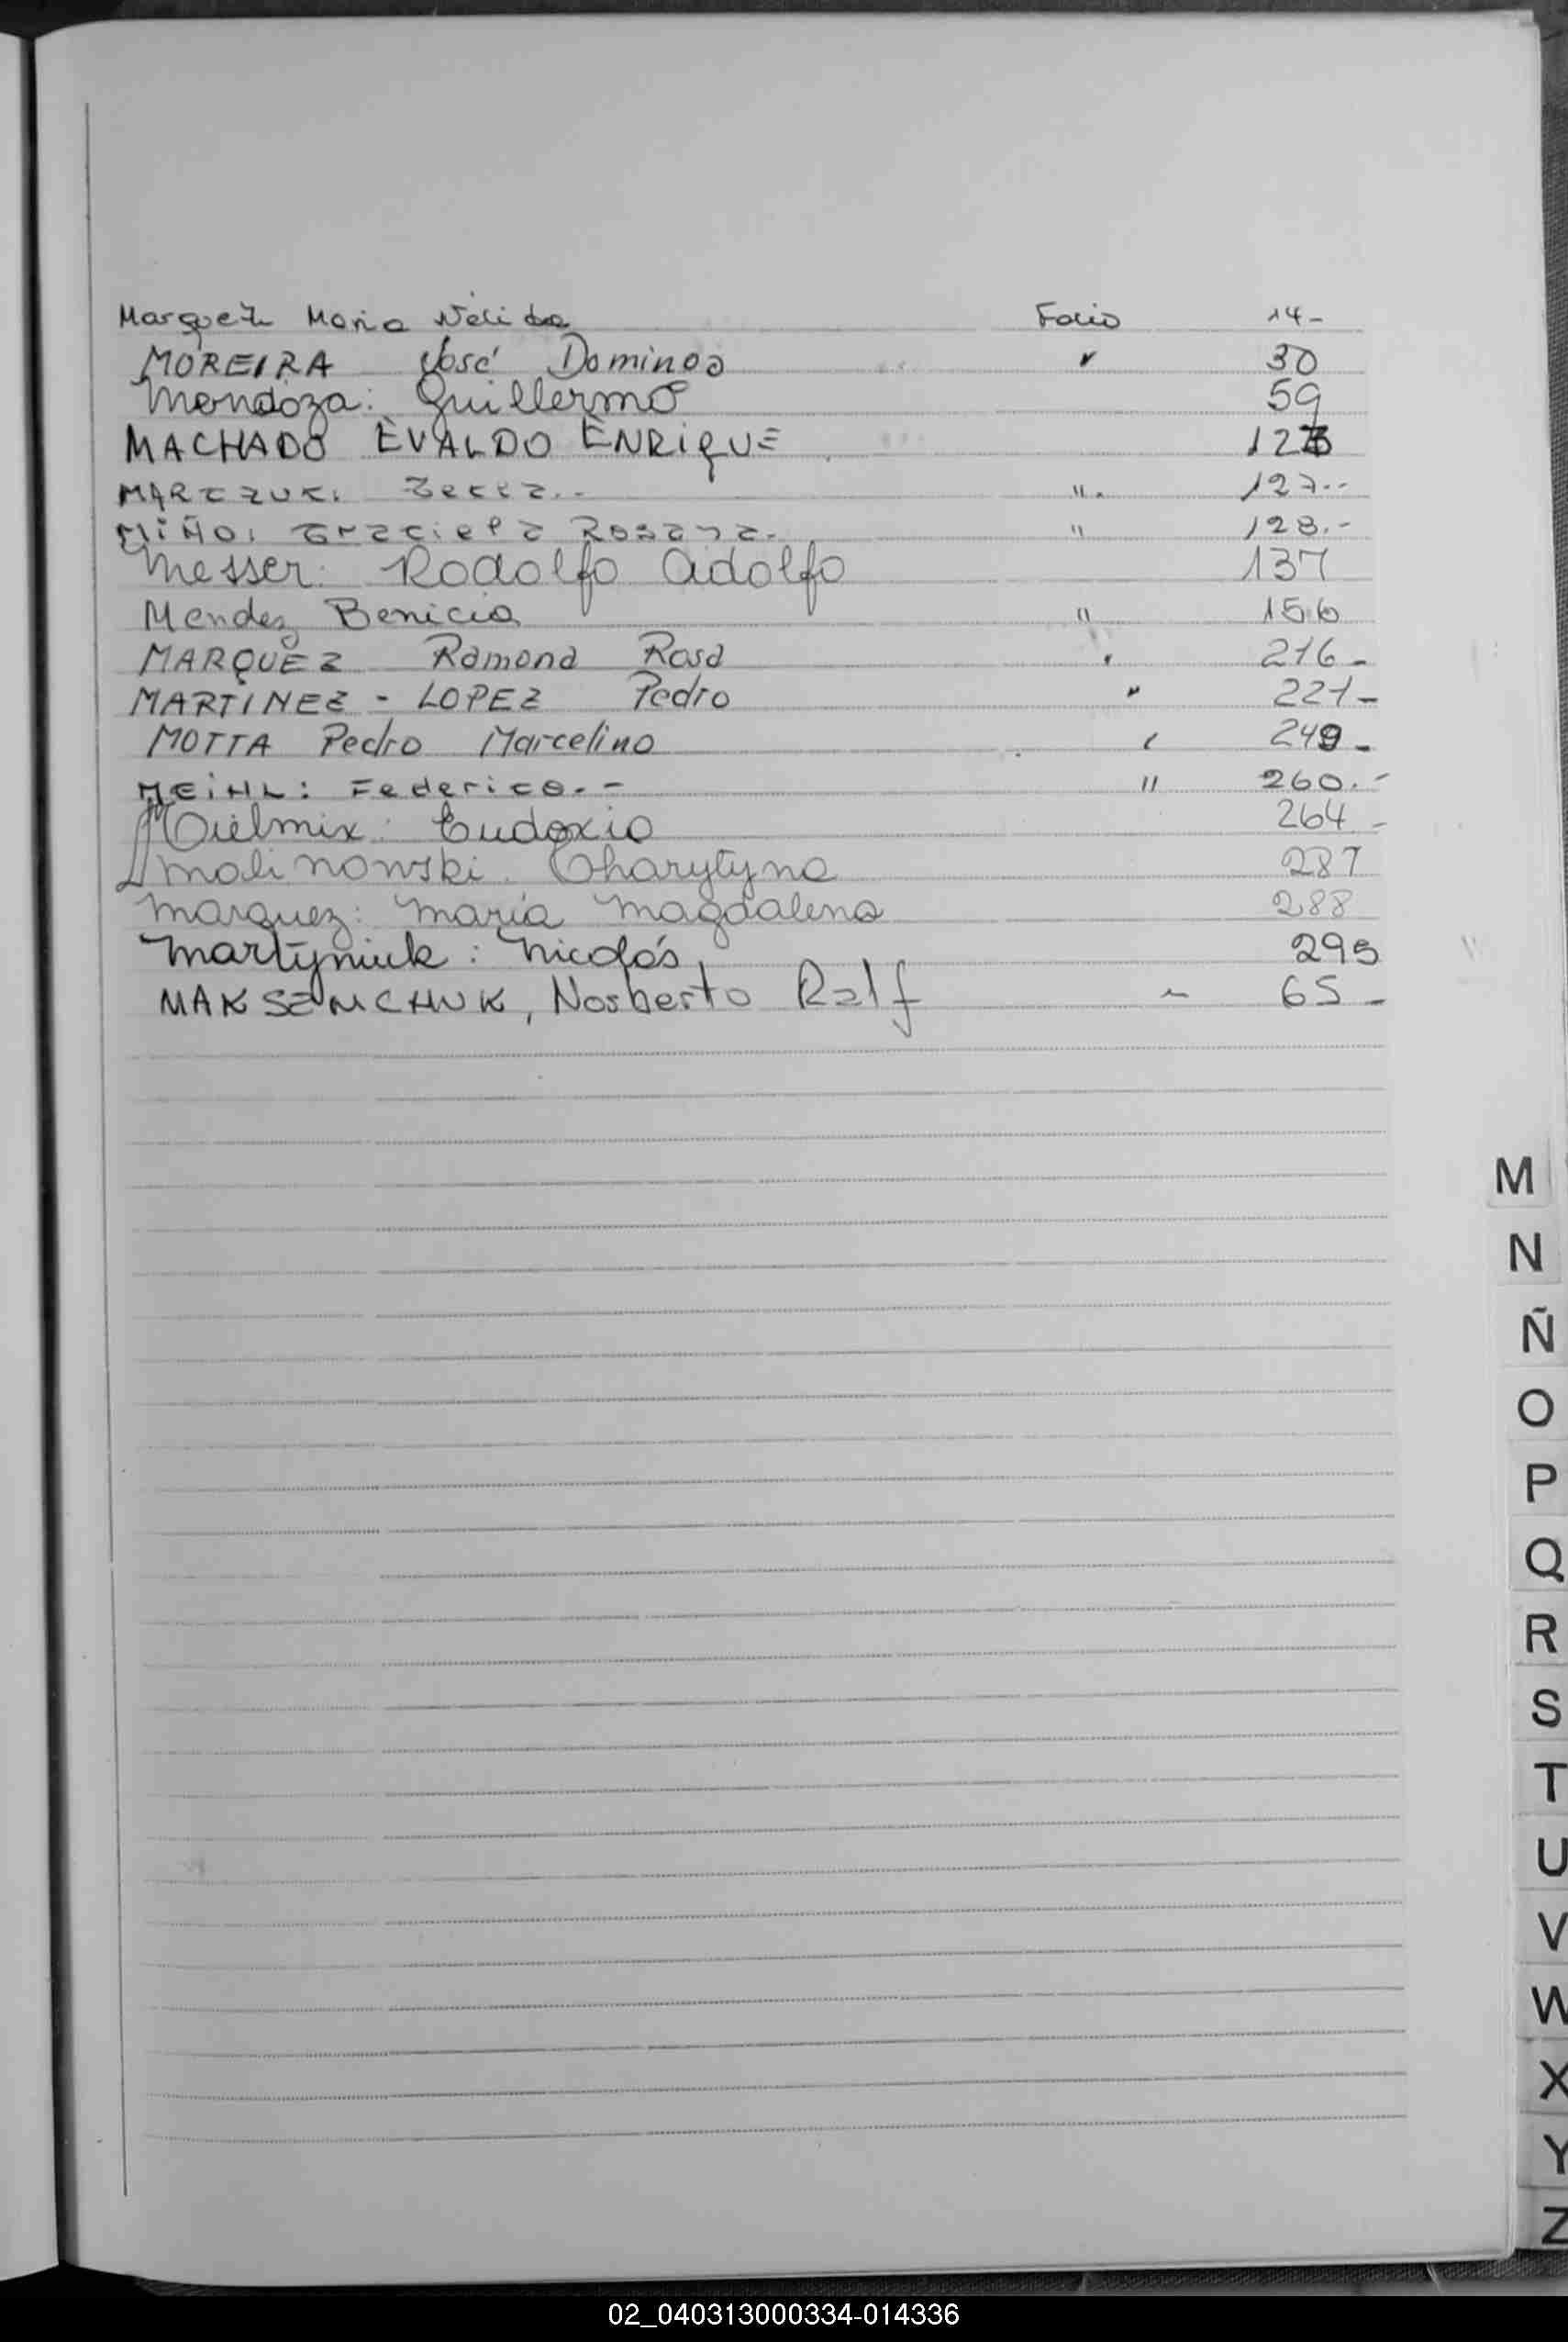 Marquez Maria Nelida Folio 14-
MOREIRA José Domingo " 30
Mendoza: Guillermo 59
MACHADO EVALDO ENRIQUE
MARCZUK: ". 127.-
MIÑO: Graciela Rosana.- " 128.-
Messer: Rodolfo Adolfo 137
Mendez Benicia " 156
MARQUEZ Ramona Rosa " 216-
MARTINEZ - LOPEZ Pedro " 221-
MOTTA Pedro Marcelino " 249-
MEINL: Federico.- " 260.-
Mielnix: Eudoxio 264-
Malinowski. Charytyna 287
Marquez: María Magdalena 288
Martyniuk: Nicolás 295
MAKSEMCHUK, Norberto Ralf " 65-
M
N
Ñ
O
P
Q
R
S
T
U
V
W
X
Y
Z
02_040313000334-014336